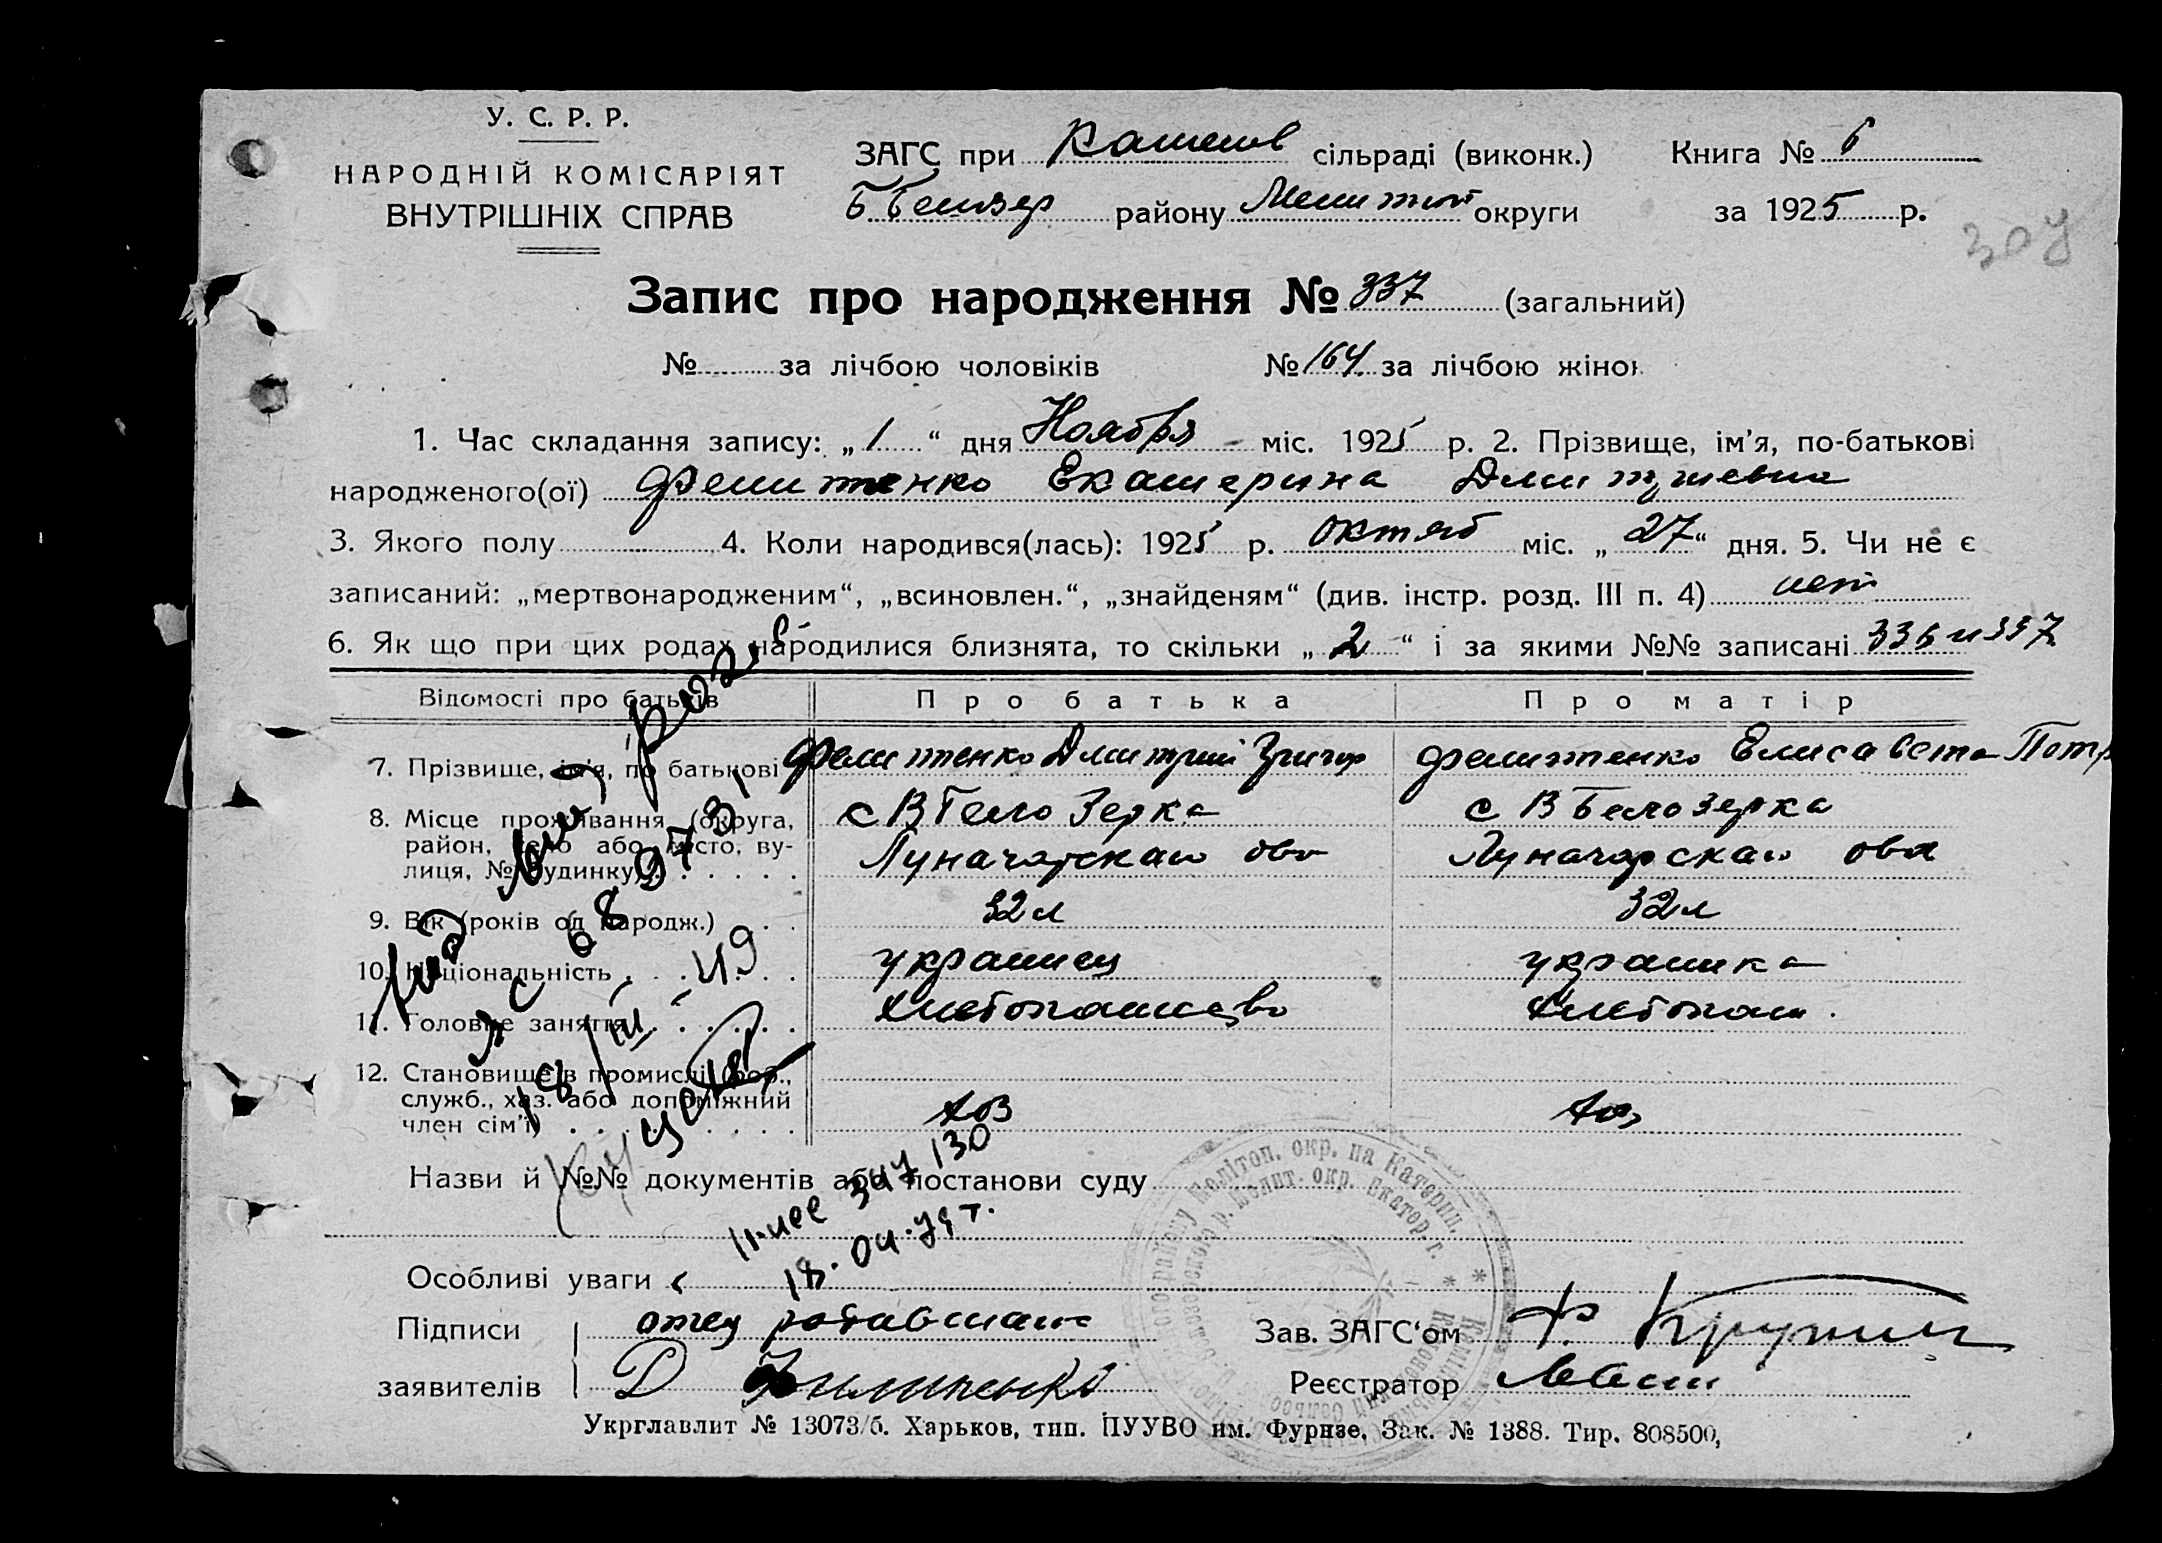 У. С. Р. Р.
НАРОДНІЙ КОМІСАРІЯТ
ВНУТРІШНІХ СПРАВ
ЗАГС при сільраді (виконк.) Книга № 6
району Мелитоп округи за 1925 р.
304
Запис про народження № 337 (загальний)
№ за лічбою чоловіків № 164 за лічбою жінок
1. Час складання запису: „1“ дня Ноября міс. 1925 р. 2. Прізвище, ім’я, по-батькові
народженого(ої) Филипенко Екатерина Дмитриевна
3. Якого полу 4. Коли народився(лась): 1925 р. октяб міс. „27“ дня. 5. Чи не є
записаний: „мертвонародженим“, „всиновлен.“, „знайденям“ (див. інстр. розд. III п. 4) нет
6. Як що при цих родах народилися близнята, то скільки „2“ і за якими №№ записані 336 и 337
Відомості про батьків Про батька Про матір
7. Прізвище, ім’я, по батькові Филипенко Дмитрий Григор Филипенко Елисавета Петр
8. Місце проживання (округа, с В Белозерка с В Белозерка
район, село або місто, ву-
лиця, № будинку) Луначарская ова Луначарская ова
9. Вік (років од народж.) 32 л 32 л
10. Національність украинец украинка
11. Головне заняття хлебопашество хлебопаш.
12. Становище в промислі (роб.,
служб., хаз. або допоміжний
член сім’ї) хоз хоз
68973
18/III-49
Назви й №№ документів або постанови суду
Особливі уваги
Підписи отец
заявителів Д Филипенко
Зав. ЗАГС‘ом
Реєстратор
Укрглавлит № 13073/б. Харьков, тип. ПУУВО им. Фурнзе, Зак. № 1388. Тир. 808500,